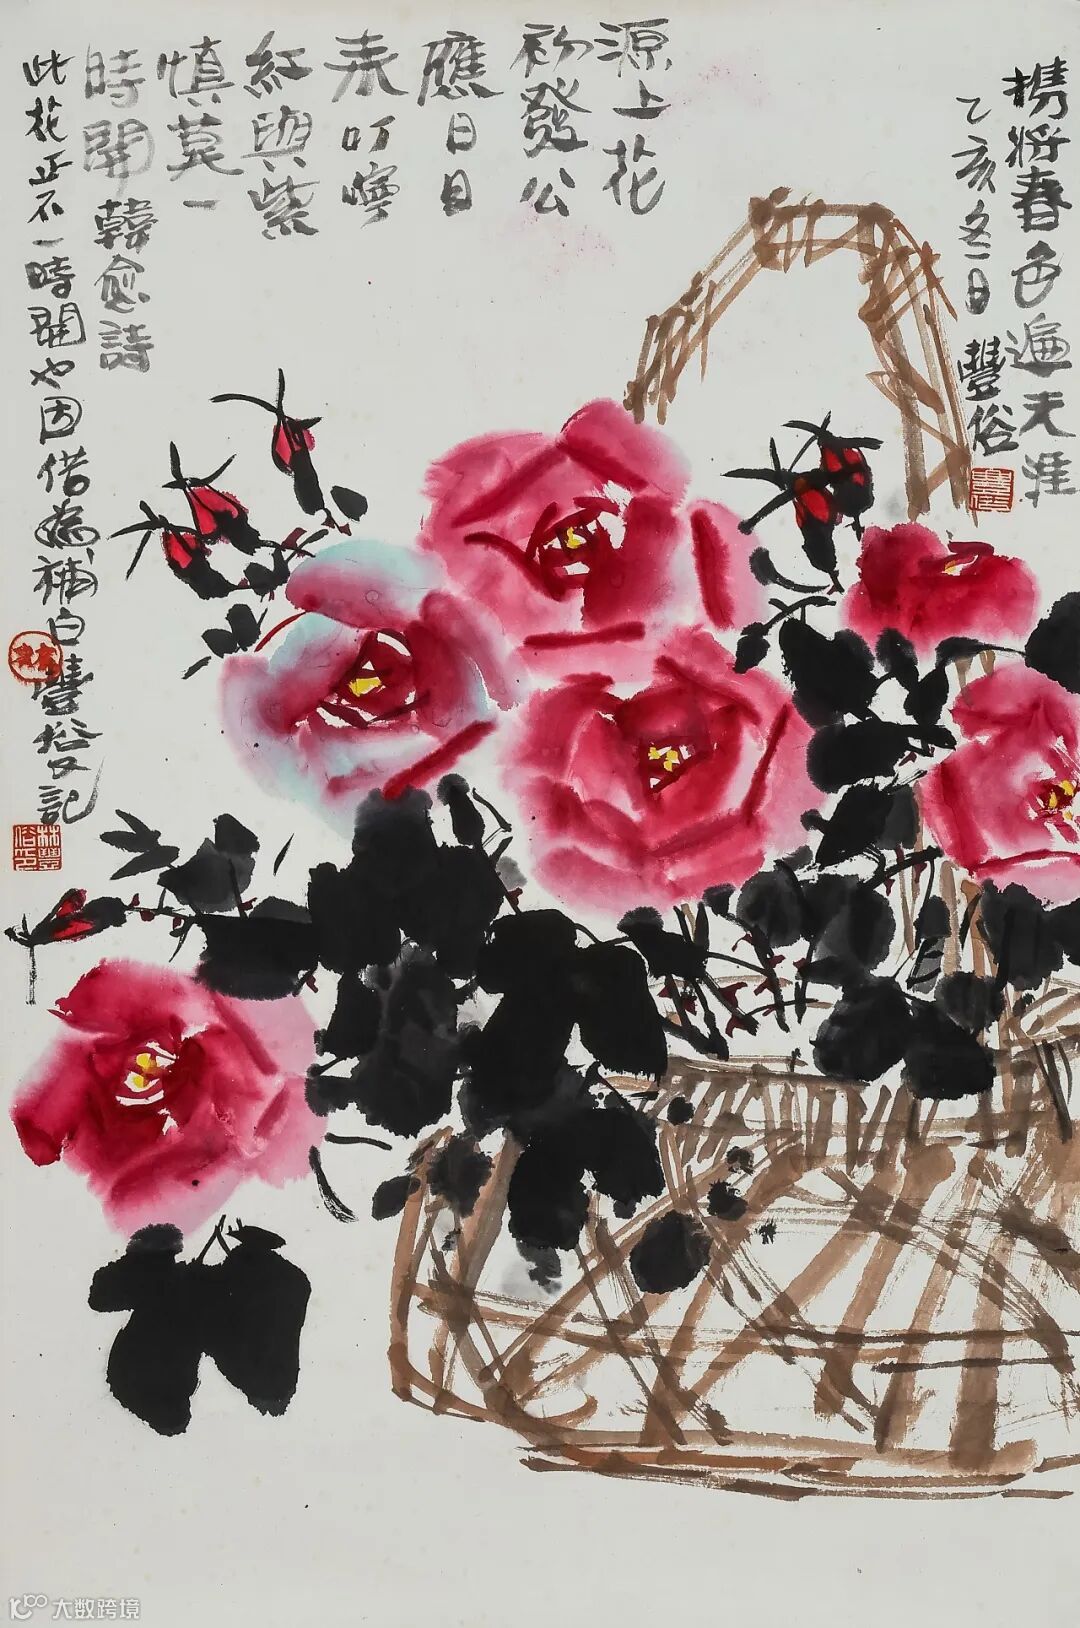 携將春色遍天涯
乙亥冬日
豐俗
源上花
初發公
應日日
来叮嚀
紅與紫
慎莫一
時開韓愈詩
此花正不一時開也因借為補白豐俗又記
林
林豐俗印
大数跨境